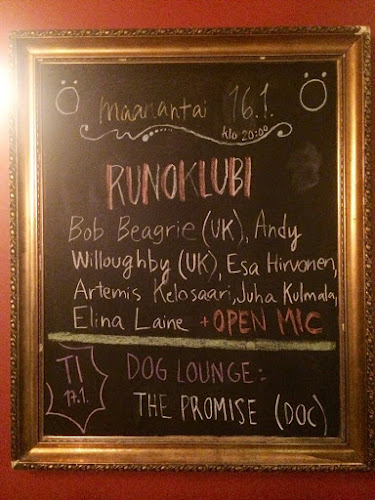 Ö maanantai 16.1. Ö
klo 20:00
RUNOKLUBI
Bob Beagrie (UK), Andy
Willoughby (UK), Esa Hirvonen,
Artemis Kelosaari, Juha Kulmala,
Elina Laine + OPEN MIC
TI DOG LOUNGE:
17.1. THE PROMISE (DOC)